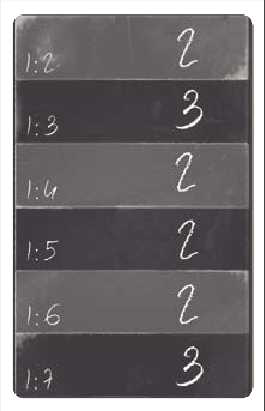 1:2 2
1:3 3
1:4 2
1:5 2
1:6 2
1:7 3